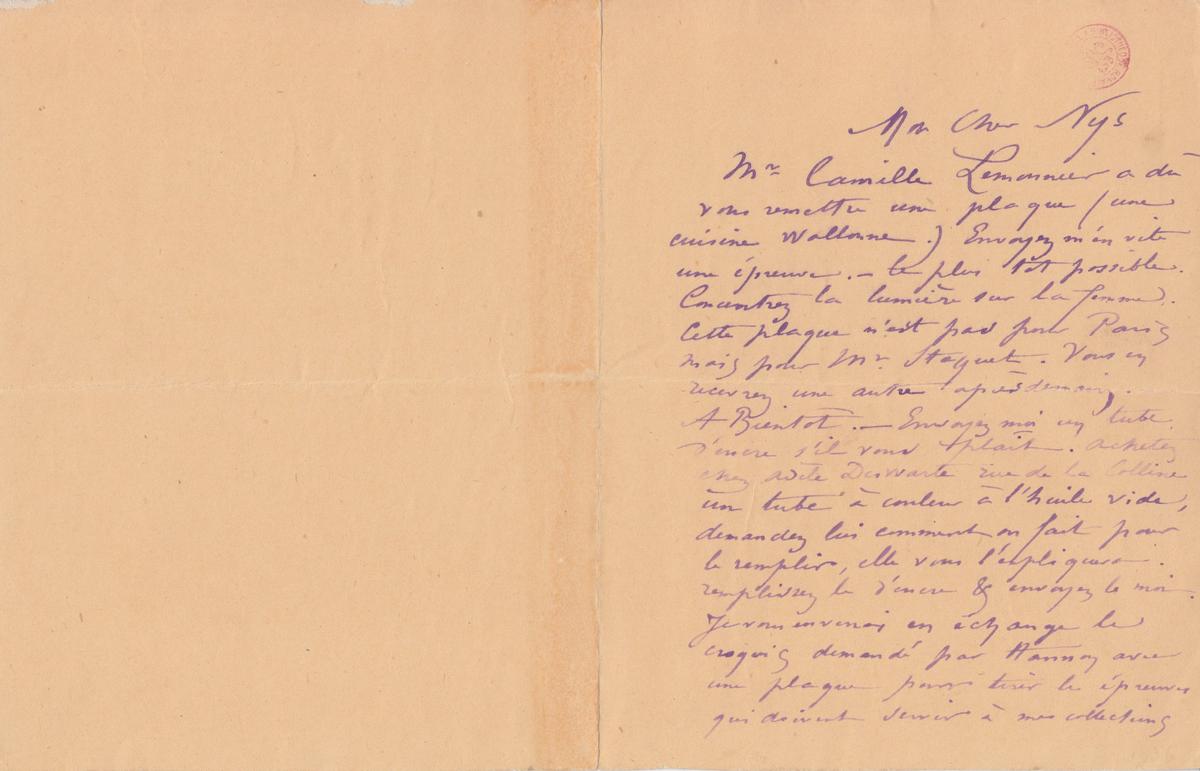 Mon Cher Nys
Mr Camille Lemonnier a dû
vous remettre une plaque (une
cuisine Wallonne.) Envoyez m'en vite
une épreuve. – le plus tôt possible.
Concentrez la lumière sur la femme.
Cette plaque n'est pas pour Paris
mais pour Mr. Staquet. Vous en
recevrez une autre après demain.
A Bientot. – Envoyez moi un tube
d'encre s'il vous plait. achetez
chez adèle Deswarte rue de la Colline
un tube à couleur à l'huile vide,
demandez lui comment on fait pour
le remplir, elle vous l'expliquera.
remplissez le d'encre & envoyez le moi.
Je vous enverrai en échange le
croquis demandé par Hannon avec
une plaque pour tirer les épreuves
qui doivent servir à mes collections